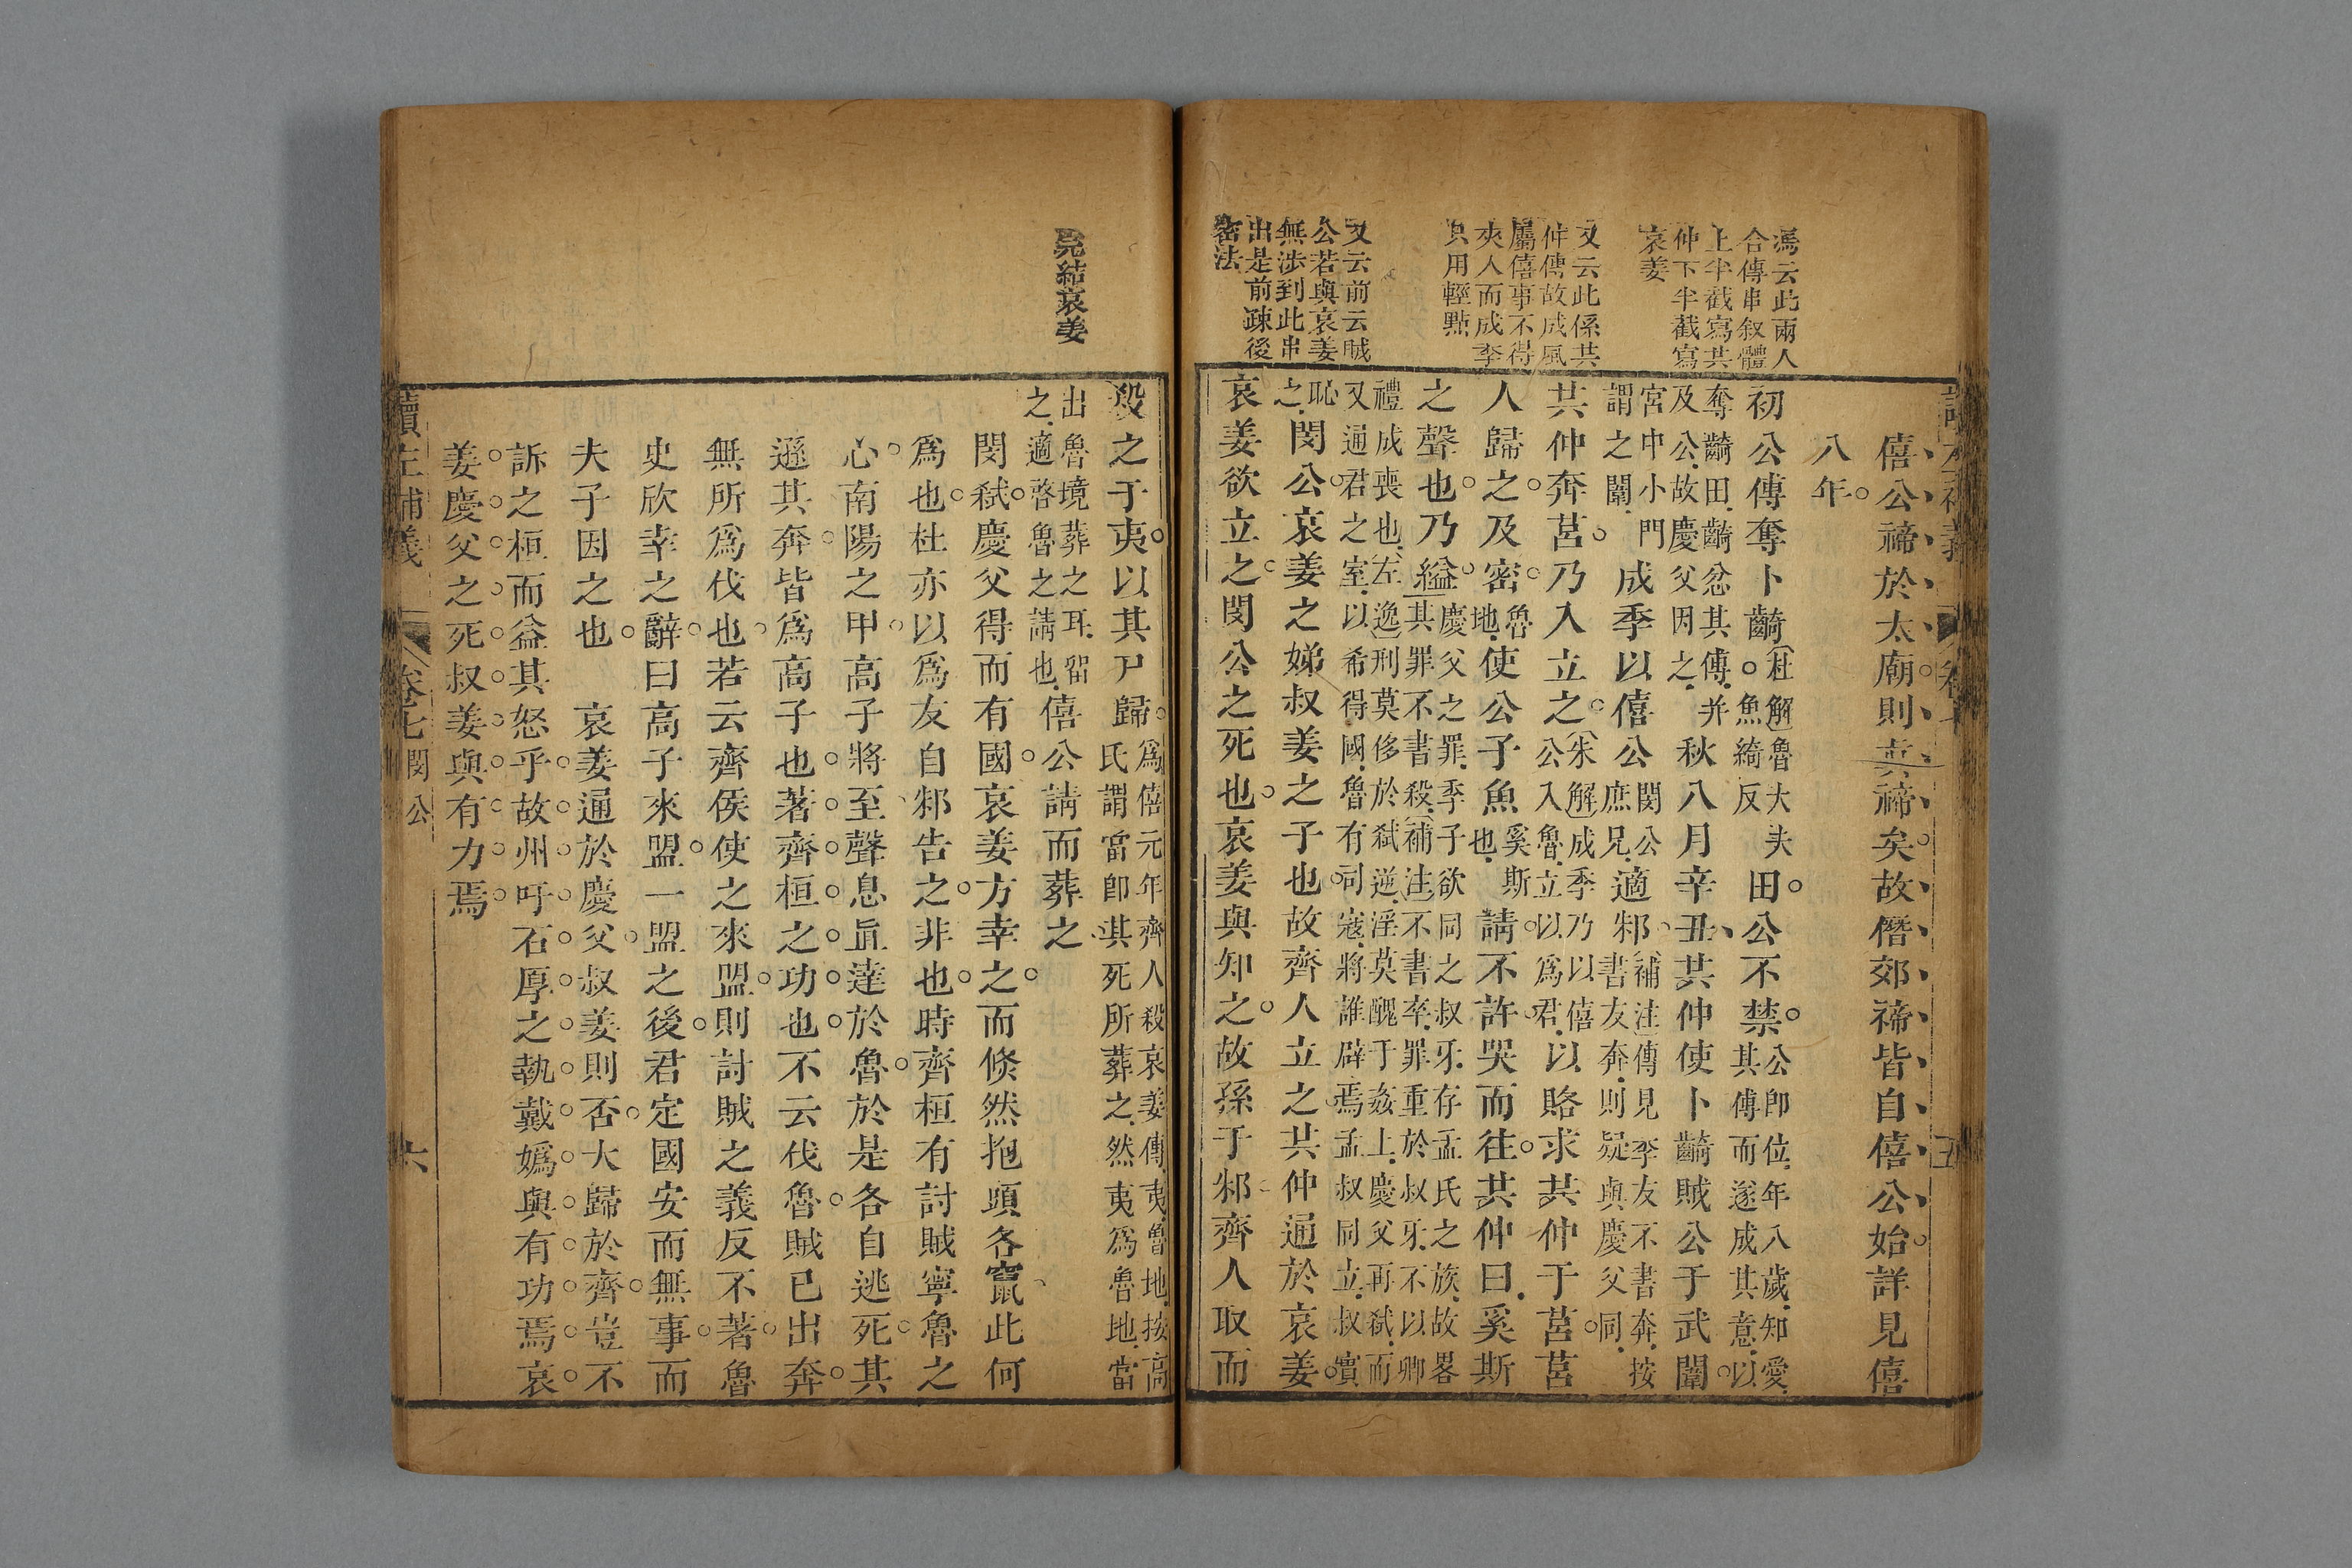 馮云此兩人
合傳串叙體
上半截寫共
仲下半截寫
哀姜
又云此係共
仲傳故成風
屬僖事不得
夾入而成季
只用輕點
又云前云賊
公若與哀姜
無涉到此串
出是前疎後
密法
僖公禘於太廟則真禘矣故僭郊禘皆自僖公始詳見僖
八年
初公傅奪卜齮杜解魯大夫魚綺反田公不禁公卽位年八歲知愛其傅而遂成其意以
奪齮田齮忿其傅并及公故慶父因之秋八月辛丑共仲使卜齮賊公于武闈
宮中小門謂之闈成季以僖公閔公庶兄適邾補注傳見季友不書奔按書友奔則疑與慶父同
共仲奔莒乃入立之朱解成季乃以僖公入魯立以爲君以賂求共仲于莒莒
人歸之及密魯地使公子魚奚斯也請不許哭而往共仲曰奚斯
之聲也乃縊慶父之罪季子欲同之叔牙存孟氏之族故畧其罪不書殺補注不書卒罪重於叔牙不以卿
禮成喪也左逸刑莫侈於弒逆淫莫醜于姦上慶父再弒而又通君之室以希得國魯有司寇將誰辟焉孟叔同立叔實
恥之閔公哀姜之娣叔姜之子也故齊人立之共仲通於哀姜
哀姜欲立之閔公之死也哀姜與知之故孫于邾齊人取而
五
完結哀姜
殺之于夷以其尸歸爲僖元年齊人殺哀姜傳夷魯地按高氏謂當卽其死所葬之然夷爲魯地當
出魯境葬之耳留之適啓魯之請也僖公請而葬之
閔弒慶父得而有國哀姜方幸之而倐然抱頭各竄此何
爲也杜亦以爲友自邾告之非也時齊桓有討賊寧魯之
心南陽之甲高子將至聲息直達於魯於是各自逃死其
遜其奔皆爲高子也著齊桓之功也不云伐魯賊已出奔
無所爲伐也若云齊侯使之來盟則討賊之義反不著魯
史欣幸之辭曰高子來盟一盟之後君定國安而無事而
夫子因之也　哀姜通於慶父叔姜則否大歸於齊豈不
訴之桓而益其怒乎故州吁石厚之執戴嬀與有功焉哀
姜慶父之死叔姜與有力焉
讀左補義　卷七　閔公　六